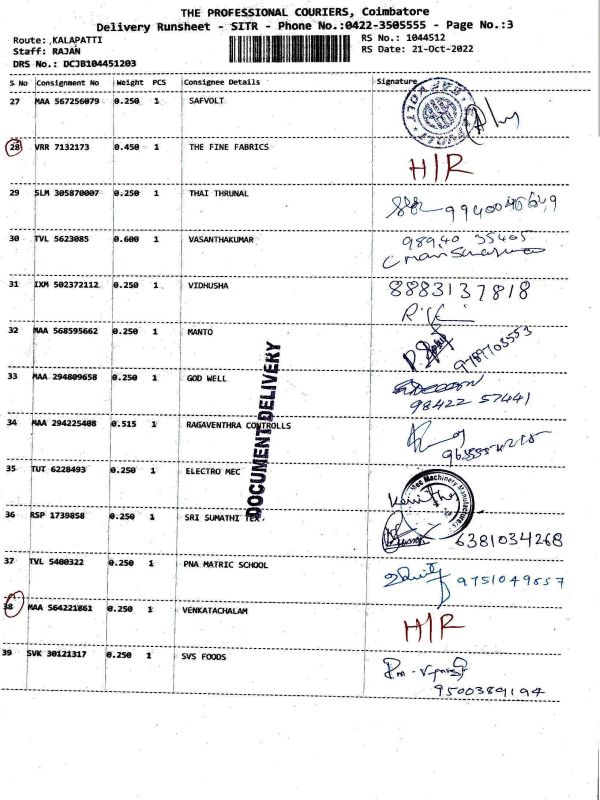 THE PROFESSIONAL COURIERS, Coimbatore
Delivery Runsheet - SITR - Phone No.:0422-3505555 - Page No.:3
Route: ,KALAPATTI
RS No.: 1044512
Staff: RAJAN
RS Date: 21-Oct-2022
DRS No.: DCJB104451203
S No Consignment No Weight PCS Consignee Details Signature
27 MAA 567256079 0.250 1 SAFVOLT
28 VRR 7132173 0.450 1 THE FINE FABRICS H/R
29 SLM 305870007 0.250 1 THAI THRUNAL
30 TVL 5623085 0.600 1 VASANTHAKUMAR 98940 35405
31 IXM 502372112 0.250 1 VIDHUSHA 8883137818
32 MAA 568595662 0.250 1 MANTO 9787703553
33 MAA 294809658 0.250 1 GOD WELL 98422 57441
34 MAA 294225408 0.515 1 RAGAVENTHRA CONTROLLS
35 TUT 6228493 0.250 1 ELECTRO MEC
36 RSP 1739858 0.250 1 SRI SUMATHI TEX 6381034268
37 TVL 5400322 0.250 1 PNA MATRIC SCHOOL 9751049857
38 MAA 564221861 0.250 1 VENKATACHALAM H/R
39 SVK 30121317 0.250 1 SVS FOODS 9500389194
DOCUMENT DELIVERY